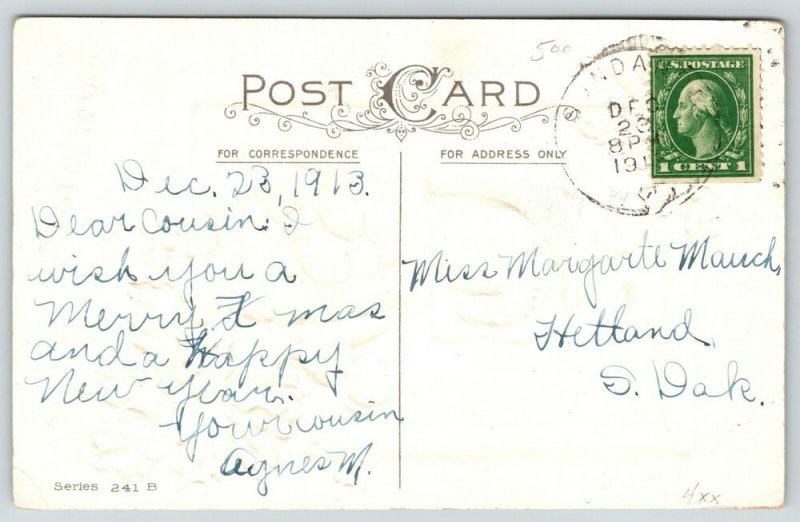 500
POST CARD
FOR CORRESPONDENCE
FOR ADDRESS ONLY
U.S. POSTAGE
1 CENT 1
DEC
23
8 P
191
Dec. 23, 1913.
Dear Cousin: I
wish you a
Merry X mas
and a Happy
New Year.
Your cousin
Agnes M.
Miss Margarte Mauch,
Hetland,
S. Dak.
Series 241 B
4xx